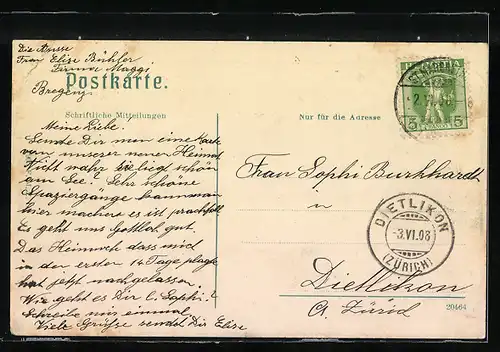 Die Adresse
Frau Elise Bühler
Firma Maggi
Bregenz
Postkarte.
Schriftliche Mitteilungen
Nur für die Adresse
Meine Liebe.
Sende Dir nun eine Karte
von unserer neuen Heimat
Nicht wahr sie liegt schön
am See! Sehr schöne
Spaziergänge kann man
hier machen es ist prachtvoll
Es geht uns Gottlob gut.
Das Heimweh dass mich
in den ersten 14 Tage plagte
hat jetzt nachgelassen.
Wie geht es Dir l. Sophi?
Schreibe mir einmal
Viele Grüsse sendet Dir Elise
Frau Sophi Burkhardt
in
Dietlikon
Ct. Zürich
2.VI.08
5 5
DIETLIKON
-3.VI.08
(ZÜRICH)
20464